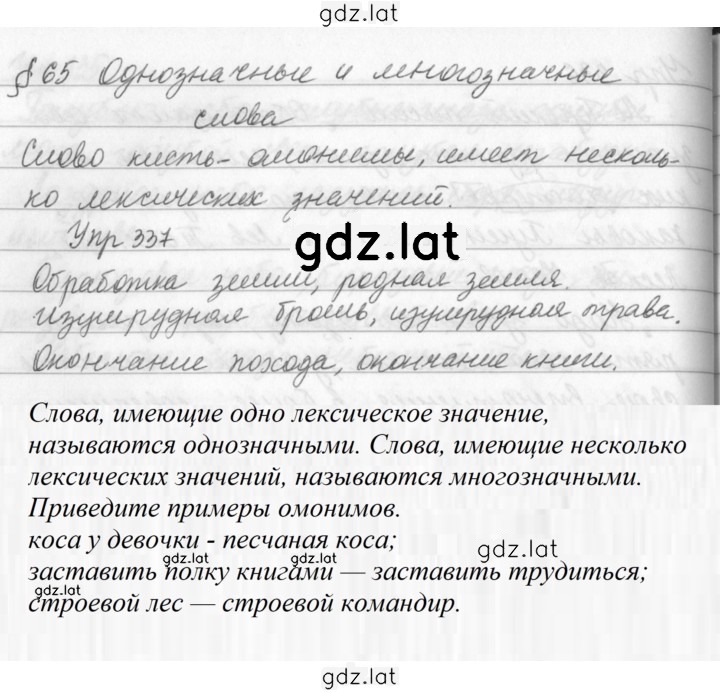 gdz.lat
§ 65 Однозначные и многозначные
слова
Слово кисть - омонимы, имеет несколь-
ко лексических значений.
Упр 337
gdz.lat
Обработка земли, родная земля.
Изумрудная брошь, изумрудная трава.
Окончание похода, окончание книги.
Слова, имеющие одно лексическое значение,
называются однозначными. Слова, имеющие несколько
лексических значений, называются многозначными.
Приведите примеры омонимов.
коса у девочки - песчаная коса;
gdz.lat
gdz.lat gdz.lat
заставить полку книгами — заставить трудиться;
gdz.lat
строевой лес — строевой командир.
gdz.lat